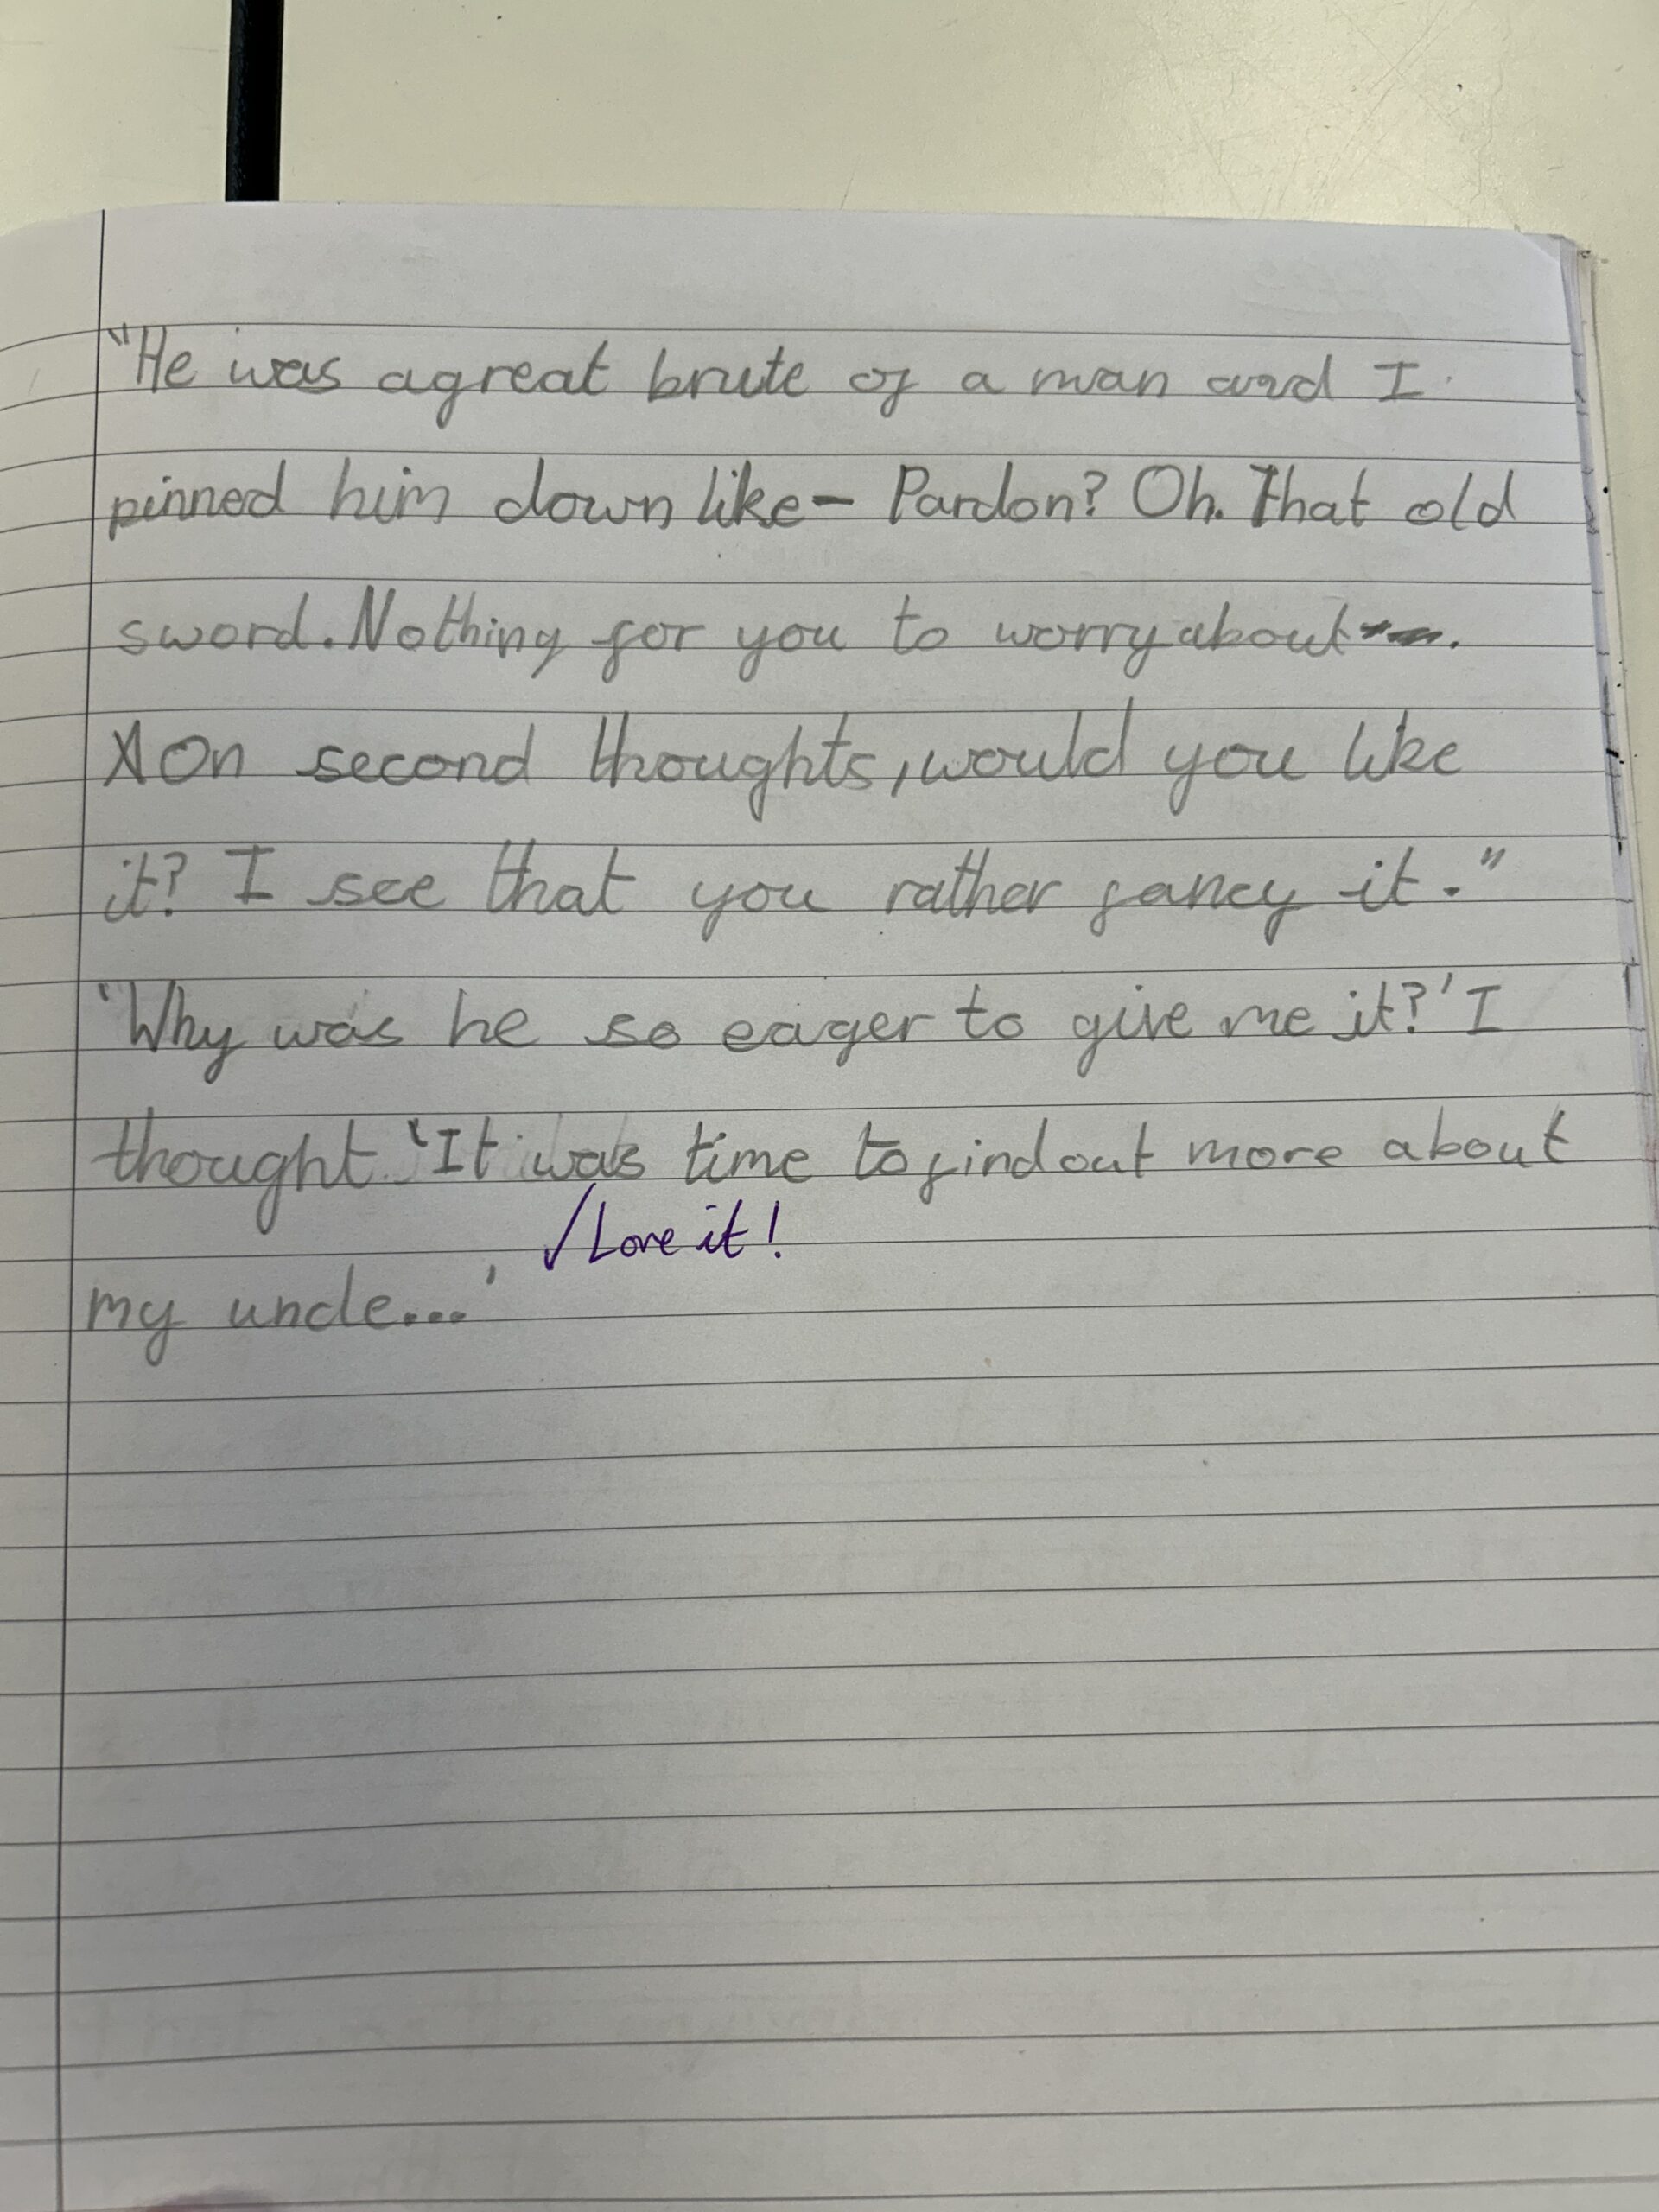 "He was a great brute of a man and I
pinned him down like- Pardon? Oh. That old
sword. Nothing for you to worry about.
On second thoughts, would you like
it? I see that you rather fancy it."
'Why was he so eager to give me it?' I
thought 'It was time to find out more about
my uncle...'
✓ Love it!